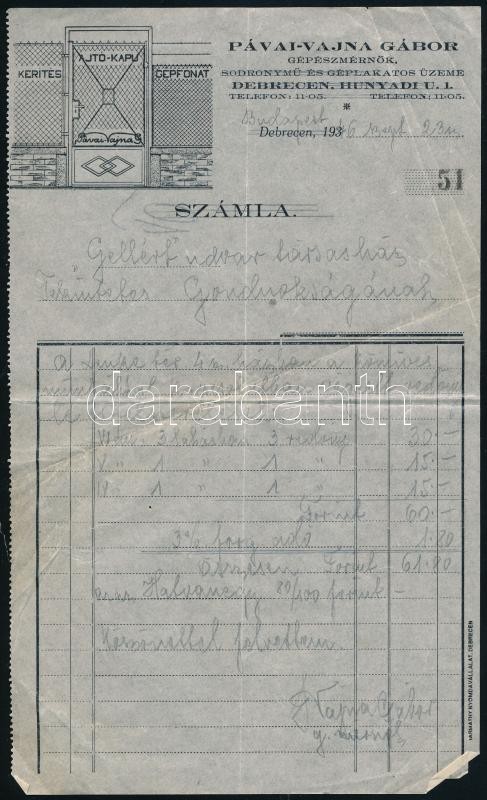 KERITÉS
AJTÓ-KAPU
GÉPFONAT
Pávai-Vajna G.
PÁVAI-VAJNA GÁBOR
GÉPÉSZMÉRNÖK,
SODRONYMŰ ÉS GÉPLAKATOS ÜZEME
DEBRECEN, HUNYADI U. 1.
TELEFON: 11-05. TELEFON: 11-05.
Budapest
Debrecen, 1936 szept 23
51
SZÁMLA.
"Gellért" udvar társasház
Tekintetes Gondnokságának
A 4 házban a
darabanth
3 lakásban 3 redőny 30.-
V " 1 " 1 " 15.-
IV " 1 " 1 " 15.-
Forint 60.-
3% forg adó 1.80
Összesen Forint 61.80
azaz Hatvanegy 80/100 forint -
Köszönettel felvettem.
Vajna Gábor
g. mérnök
HARMATHY NYOMDAVÁLLALAT, DEBRECEN